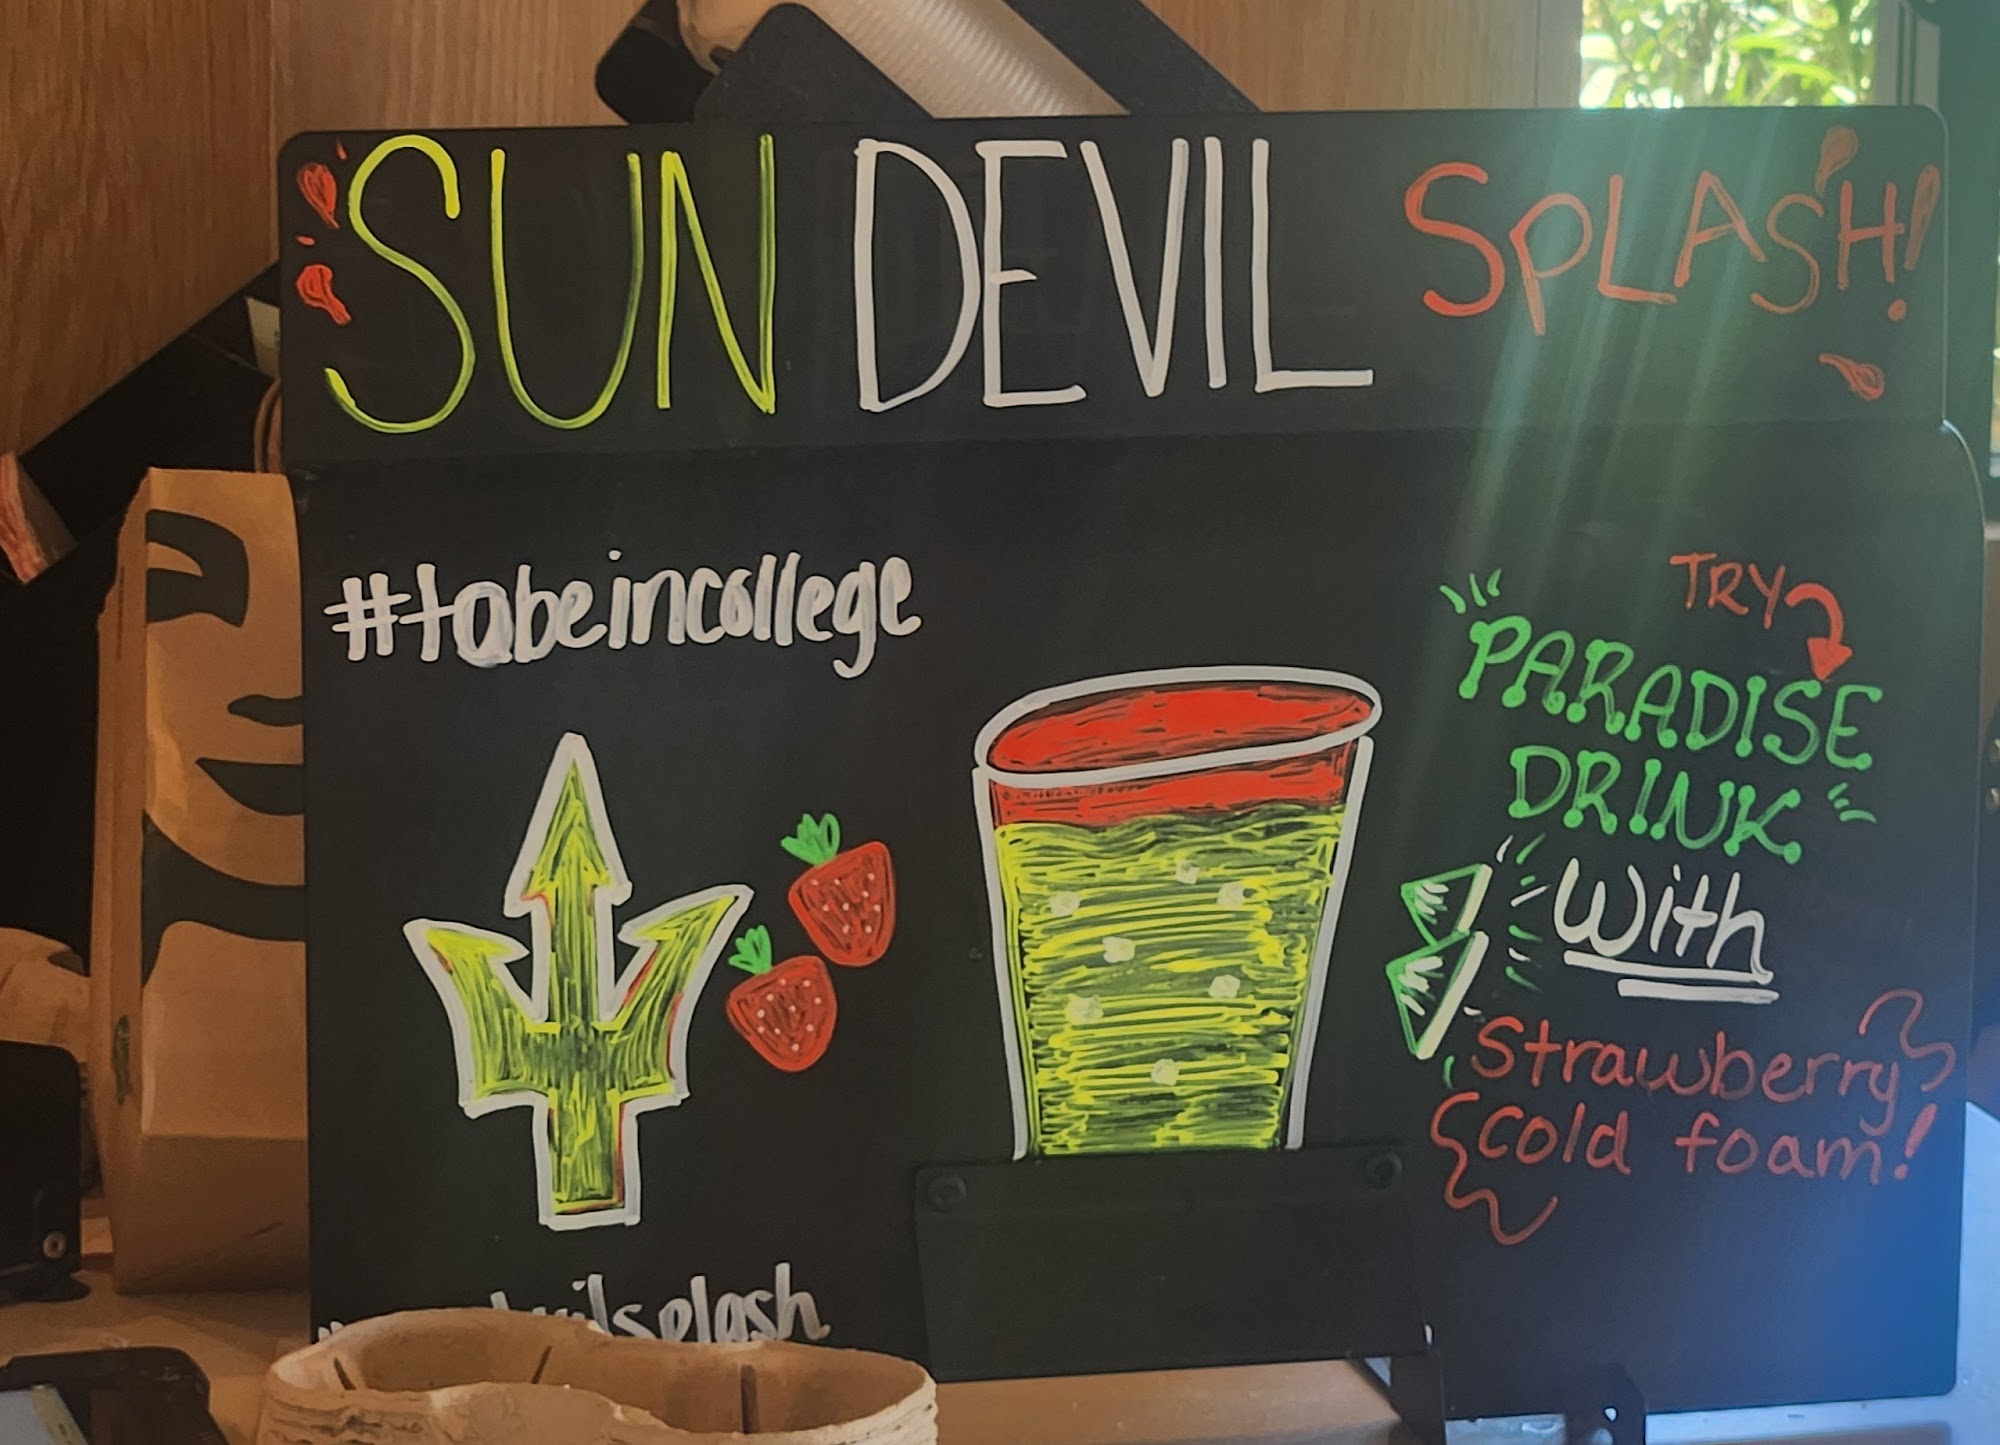 SUN DEVIL SPLASH!
#tobeincollege
TRY
PARADISE
DRINK
With
Strawberry
cold foam!